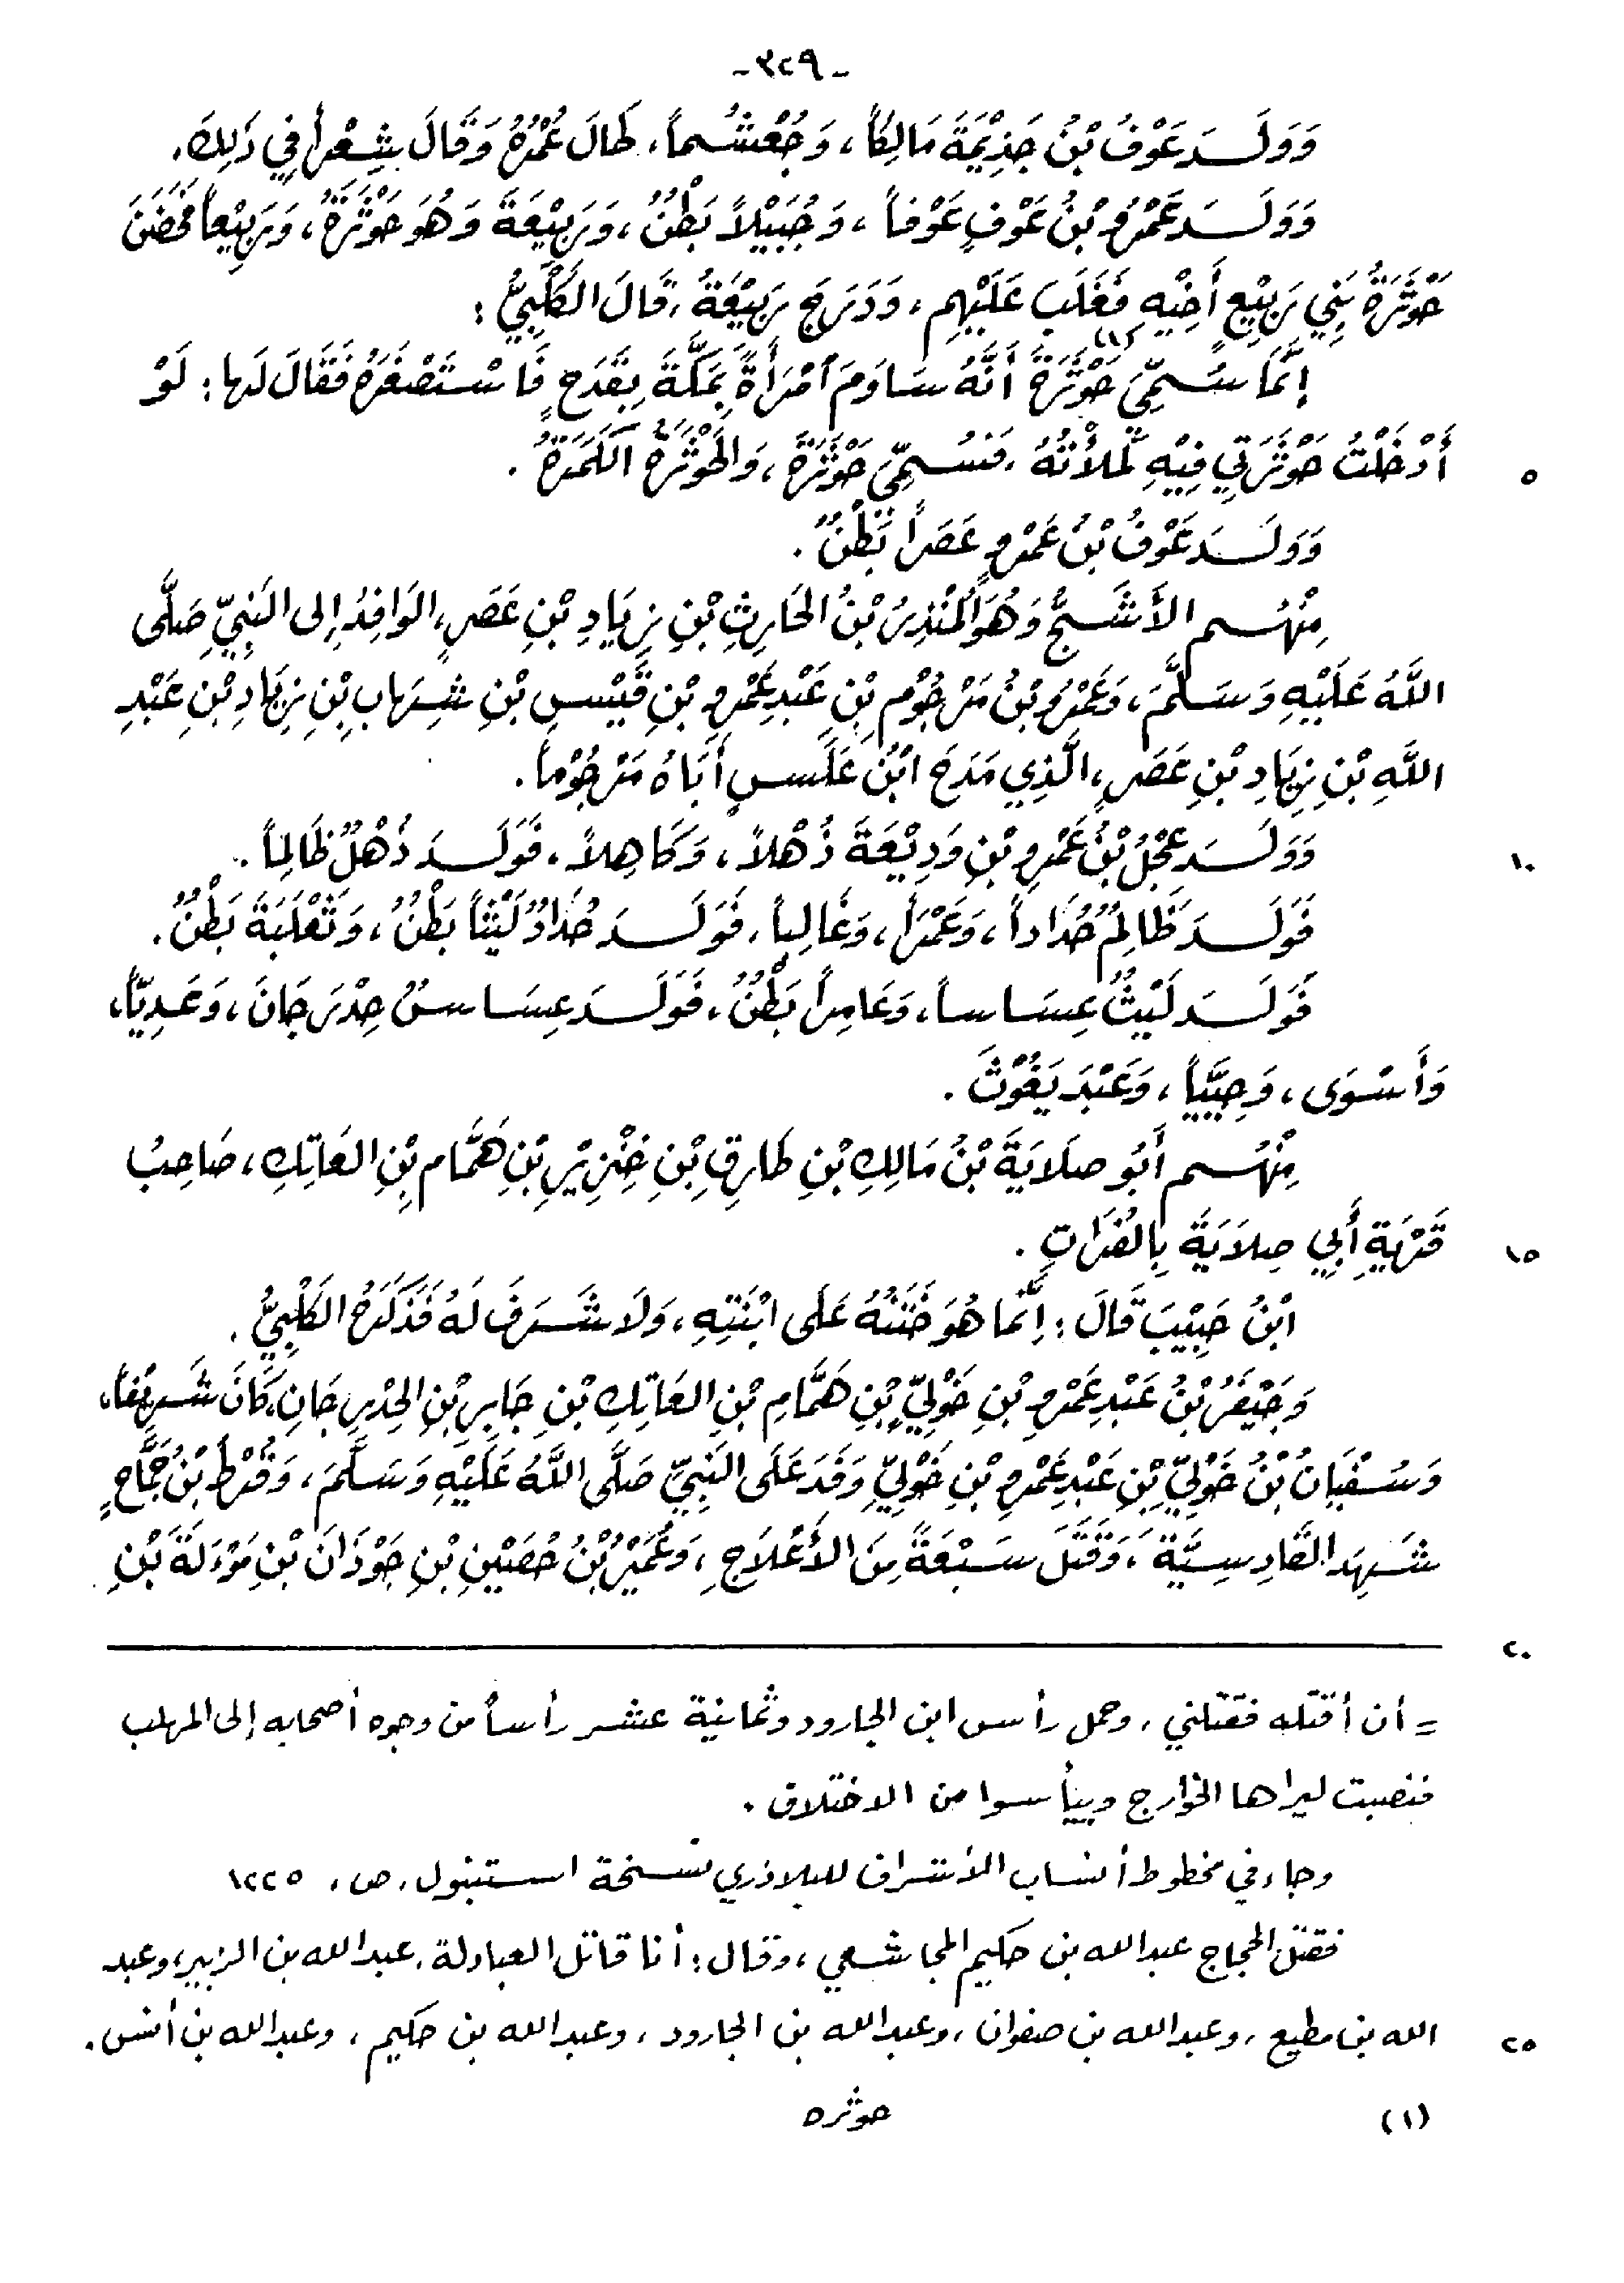 -٣٢٩-
وَوَلَـــدَ عَوْفُ بْنُ جَذِيْمَةَ مَالِكاً، وَجُعْشُـماً، طَالَ عُمْرُهُ وَقَالَ شِعْراً فِي ذَلِكَ.
وَوَلَـــدَ عَمْرُو بْنُ عَوْفٍ عَوْفاً، وَجُبَيْلاً بَطْنٌ، وَرَبِيْعَةَ وَهُوَ حَوْثَرَةُ، وَرَبِيْعاً فَحَضَنَ
حَوْثَرَةُ بَنِي رَبِيْعٍ أَخِيْهِ فَغَلَبَ عَلَيْهِم، وَدَرَجَ رَبِيْعَةُ، قَالَ الكَلْبِيُّ:
إِنَّمَا سُمِّيَ حَوْثَرَةَ (١) أَنَّهُ سَاوَمَ امْرَأَةً بِمَكَّةَ بِقَدَحٍ فَاسْتَصْغَرَهُ فَقَالَ لَها: لَوْ
أَدْخَلْتُ حَوْثَرَتِي فِيْهِ لَمَلأْتُهُ، فَسُـمِّيَ حَوْثَرَةَ، وَالحَوْثَرَةُ الكَمَرَةُ. ٥
وَوَلَـــدَ عَوْفُ بْنُ عَمْرٍو عَصَراً بَطْنٌ.
مِنْهُـــم الأَشَـجُّ وَهُوَ المُنْذِرُ بْنُ الحَارِثِ بْنِ زِيَادِ بْنِ عَصَرٍ، الوَافِدُ إِلى النَّبِيِّ صَلَّى
اللَّهُ عَلَيْهِ وَسَلَّمَ، وَعَمْرُو بْنُ مَرْجُوْمِ بْنِ عَبْدِ عَمْرِو بْنِ قَيْسِ بْنِ شِهَابِ بْنِ زِيَادِ بْنِ عَبْدِ
اللَّهِ بْنِ زِيَادِ بْنِ عَصَرٍ، الَّذِي مَدَحَ ابْنُ عَلَسٍ أَبَاهُ مَرْجُوْماً.
وَوَلَـــدَ عِجْلُ بْنُ عَمْرِو بْنِ وَدِيْعَةَ ذُهْلاً، وَكَاهِلاً، فَوَلَـــدَ ذُهْلٌ ظَالِماً. ١٠
فَوَلَـــدَ ظَالِمٌ حُدَاداً، وَعَمْراً، وَغَالِباً، فَوَلَـــدَ حُدَادٌ لَيْثاً بَطْنٌ، وَثَعْلَبَةَ بَطْنٌ.
فَوَلَـــدَ لَيْثٌ عِسَاساً، وَعَامِراً بَطْنٌ، فَوَلَـــدَ عِسَاسٌ حِدْرَجَانَ، وَعَدِيّاً،
وَأَسْوَى، وَحِيَيّاً، وَعَبْدَ يَغُوْثَ.
مِنْهُـــم أَبُو صَلَايَةَ بْنُ مَالِكِ بْنِ طَارِقِ بْنِ خِنْزِيْرِ بْنِ هَمَّامِ بْنِ العَاتِكِ، صَاحِبُ
قَرْيَةِ أَبِي صِلَايَةَ بِالفُرَاتِ. ١٥
ابْنُ حَبِيْبَ قَالَ: إِنَّمَا هُوَ خَتَنُهُ عَلَى ابْنَتِهِ، وَلَا شَـرَفَ لَهُ فَذَكَرَهُ الكَلْبِيُّ.
وَجَيْفَرُ بْنُ عَبْدِ عَمْرِو بْنِ خَوْلِيِّ بْنِ هَمَّامِ بْنِ العَاتِكِ بْنِ جَابِرِ بْنِ الحِدْرِجَانِ، كَانَ شَـرِيْفاً،
وَسُـفْيَانُ بْنُ خَوْلِيِّ بْنِ عَبْدِ عَمْرِو بْنِ خَوْلِيٍّ وَفَدَ عَلَى النَّبِيِّ صَلَّى اللَّهُ عَلَيْهِ وَسَلَّمَ، وَقُرْطُ بْنُ جَمَّاحٍ
شَـهِدَ القَادِسِيَّةَ، وَقَتَلَ سَـبْعَةً مِنَ الأَعْلَاجِ، وَعُمَيْرُ بْنُ حُصَيْنِ بْنِ جَوْذَانَ بْنِ مَوْءَلَةَ بْنِ
٢٠
= أن أقتله فقتلني، وحمل رأس ابن الجارود وثمانية عشر رأساً من وجوه أصحابه إلى المهلب
فنصبت ليراها الخوارج وييأسوا من الاختلاق.
وجاء في مخطوط أنساب الأشراف للبلاذري نسخة استنبول، ص، ١٢٢٥
فقتل الحجاج عبدالله بن حكيم المجاشعي، وقال: أنا قاتل العبادلة، عبدالله بن الزبير، وعبد
الله بن مطيع، وعبدالله بن صفوان، وعبدالله بن الجارود، وعبدالله بن حكيم، وعبدالله بن أنس. ٢٥
(١) حوثره